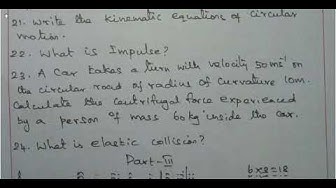 21. Write the kinematic equations of circular
motion.
22. What is Impulse?
23. A Car takes a turn with velocity 50ms⁻¹ on
the circular road of radius of curvature 10m.
Calculate the centrifugal force experienced
by a person of mass 60kg inside the car.
24. What is elastic collision?
Part-III
6x3=18